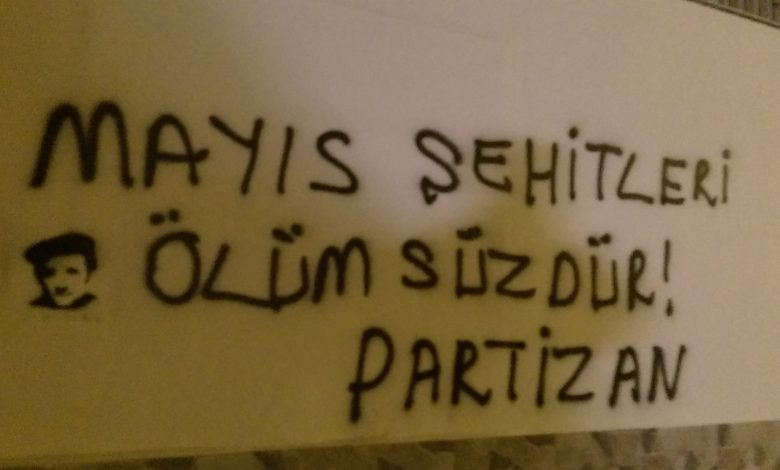 MAYIS ŞEHİTLERİ
ÖLÜMSÜZDÜR!
PARTİZAN